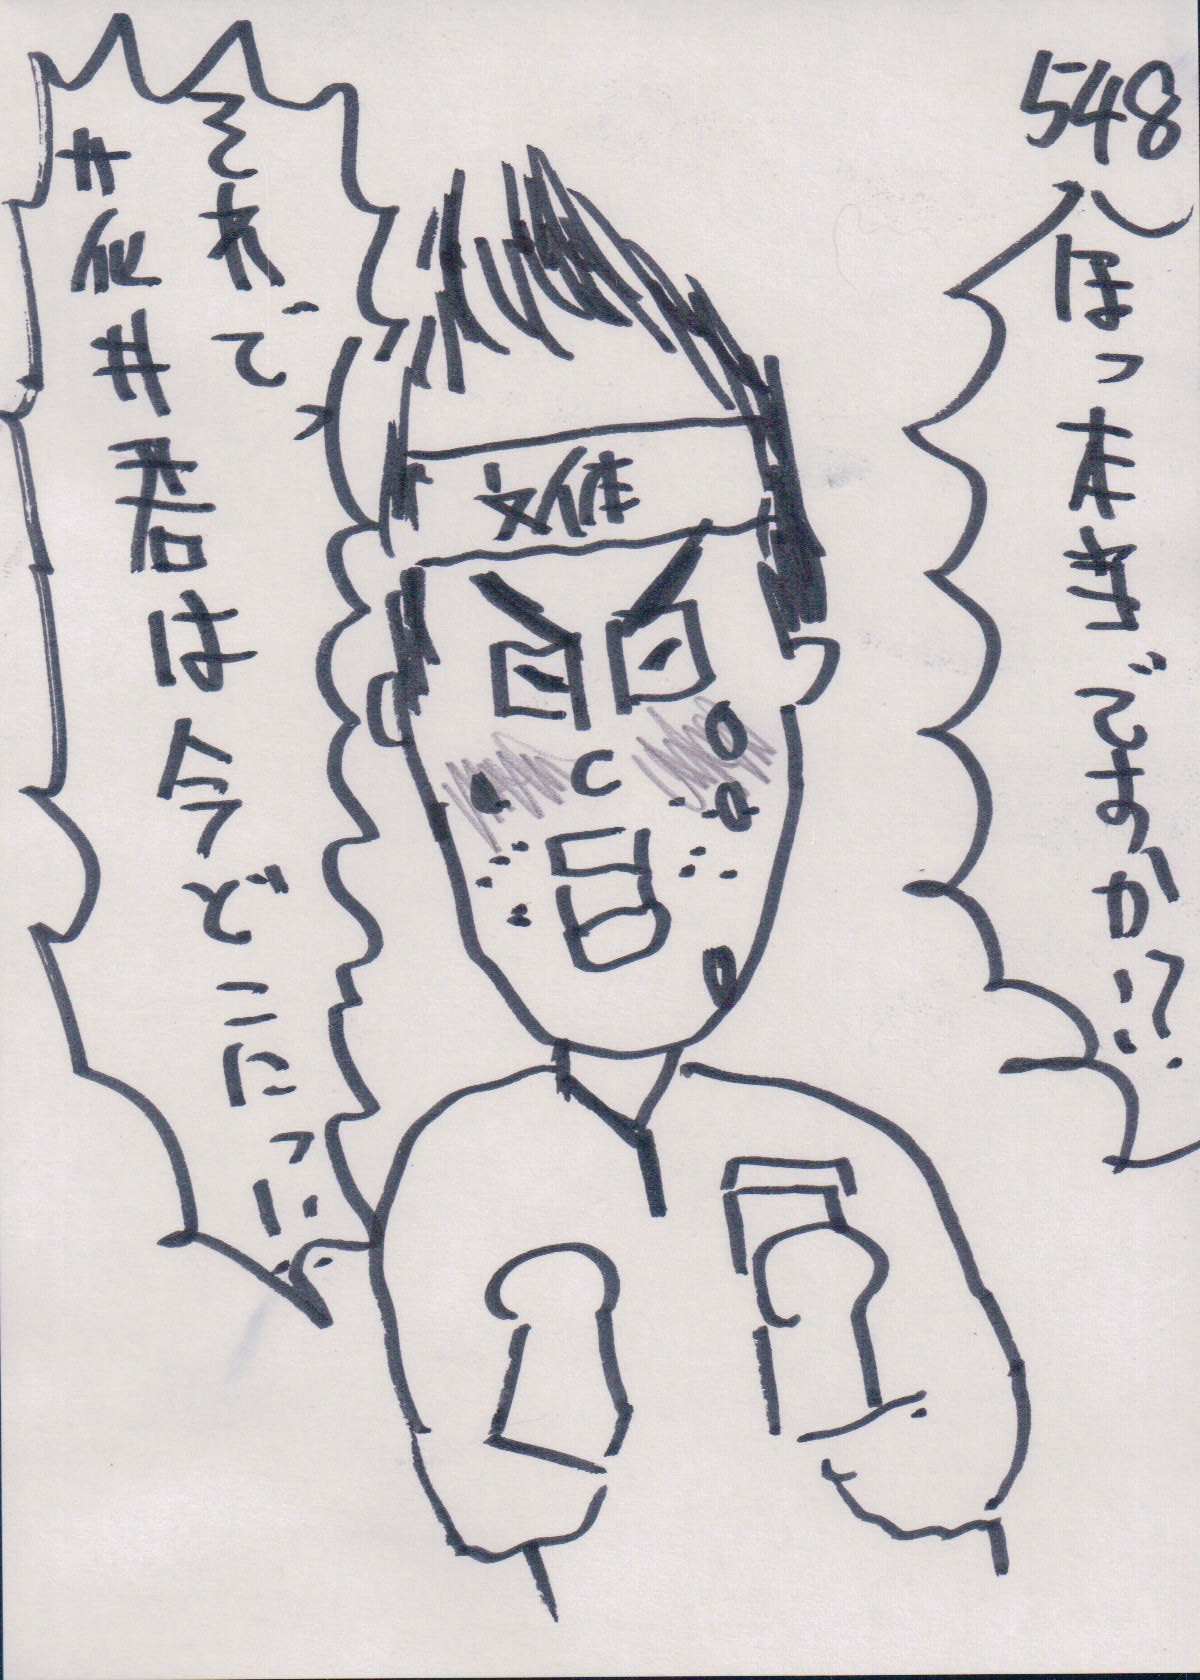 548
ほっ本当ですか…?
それで
君は今どこにっに…